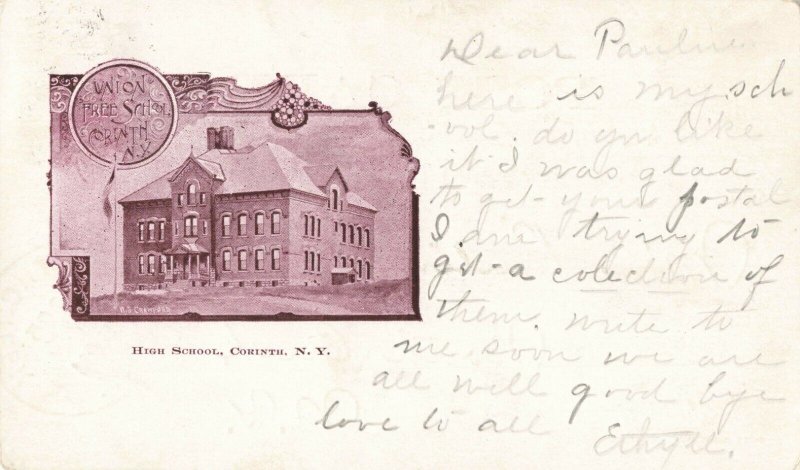 UNION
FREE SCHOOL
CORINTH
N.Y.
R.J. CRAWFORD
HIGH SCHOOL, CORINTH, N. Y.
Dear Pauline
here is my sch
-ool. do you like
it I was glad
to get your postal
I am trying to
get a colection of
them. write to
me soon we are
all well good bye
love to all
Ethyll.